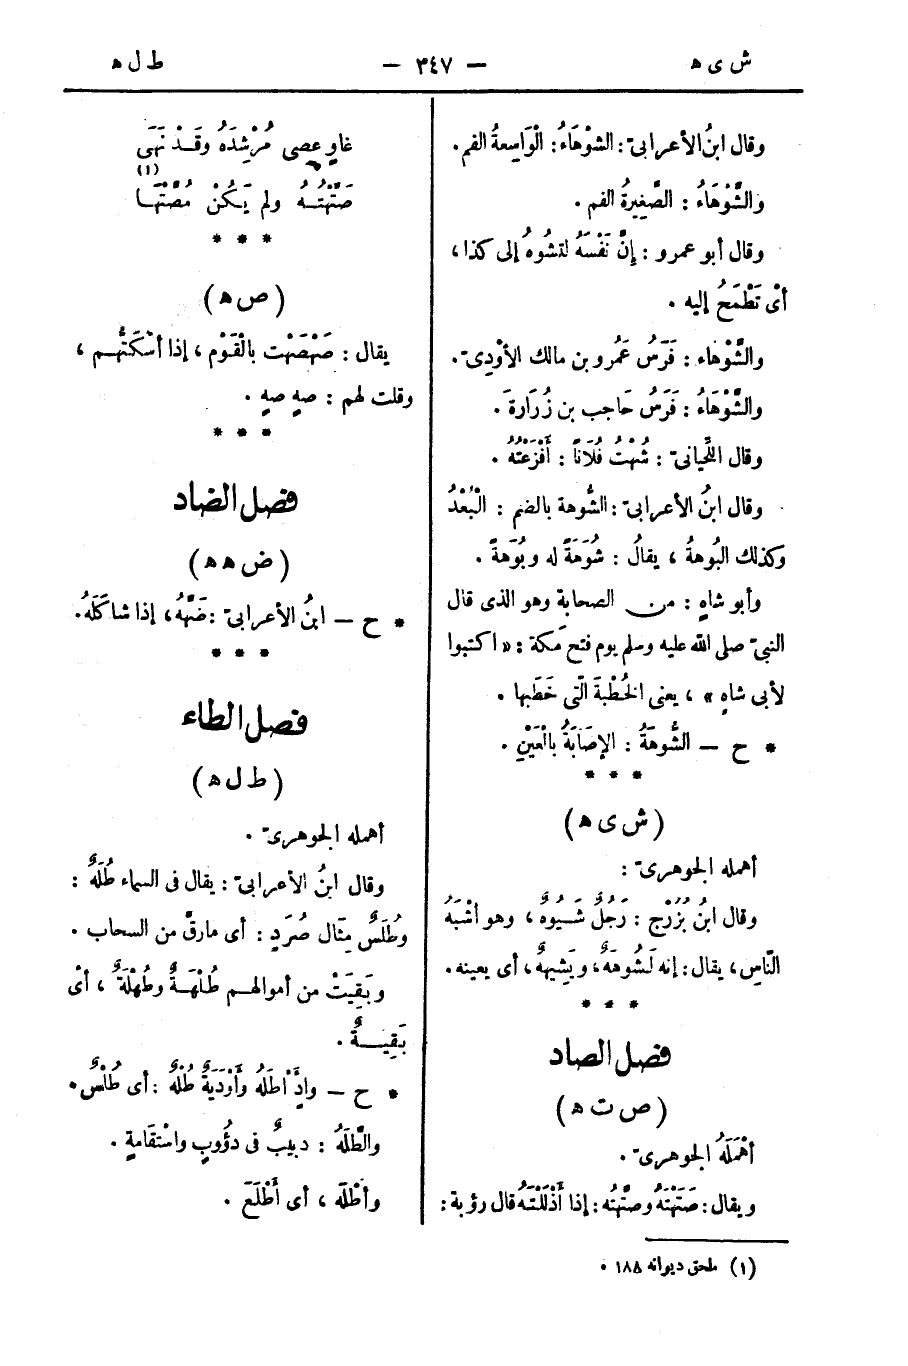 ش ى ه
— ٣٤٧ —
ط ل ه
وقال ابنُ الأعرابىّ : الشوْهَاءُ : الْوَاسِعةُ الفم .
والشَّوْهَاءُ : الصَّغِيرةُ الفم .
وقال أبو عمرو : إنَّ نَفْسَهُ لتشُوهُ إلى كذا ،
أىْ تَطْمَحُ إليه .
والشَّوْهاء : فَرَسُ عَمْرو بن مالك الأوْدِىّ .
والشَّوْهَاءُ : فَرَسُ حَاجب بن زُرَارةَ .
وقال اللِّحيانىّ : شُهْتُ فُلَانًا : أَفْزَعْتُهُ .
وقال ابنُ الأعرابىّ : الشُّوهة بالضم : الْبُعْدُ
وكذلك البُوهةُ ، يقالُ : شُوهَةً له وبُوَهةً .
وأبو شاهٍ : من الصحابة وهو الذى قال
النبىّ صلى الله عليه وسلم يوم فتح مَكة : « اكتبوا
لأبى شاهٍ » ، يعنى الخُطْبةَ الّتى خَطَبها .
* ح — الشُّوهَةُ : الإصَابَةُ بالْعَيْنِ .
* * *
( ش ى ه )
أهمله الجوهرىّ :
وقال ابنُ بُزُرْج : رَجُلٌ شَيُوهٌ ، وهو أشْبَهُ
النّاسِ ، يقال : إنه لَشُوهَهٌ ، ويَشِيهُهٌ ، أى يعينه .
* * *
فصل الصاد
( ص ت ه )
أهْمَلَهُ الجوهرىّ .
ويقال : صَتَهْتَهُ وصتَّهْتُه : إذا أذْلَلْتَهُ قال رؤبة :
غاوٍ عصى مُرْشِدَهُ وقَدْ نَهَى
صَتَّهْتُهُ ولم يَكُنْ مُصَّتْهَا (١)
* * *
( ص ه )
يقال : صَهْصَهْت بالْقَوْم ، إذا أسْكَتَّهُم ،
وقلت لهم : صهٍ صهٍ .
* * *
فصل الضاد
( ض ه ه )
* ح — ابنُ الأعرابىّ : ضَهَّهُ ، إذا شاكَلَهُ .
* * *
فصل الطاء
( ط ل ه )
أهمله الجوهرىّ .
وقال ابنُ الأعرابىّ : يقال فى السماء طُلَهٌ :
وطُلَسٌ مثال صُرَدٍ : أى مارقَّ من السحاب .
وبَقِيَتْ من أموالهم طُلْهَةٌ وطُهْلَةٌ ، أىْ
بَقِيةٌ .
* ح — وادٍ أطْلَهُ وأوْدَيةٌ طُلْهٌ : أى طُلْسٌ .
والطَّلَهُ : دبيبٌ فى دؤُوبٍ واسْتقَامةٍ .
وأطْلَه ، أى أطْلَعَ .
(١) ملحق ديوانه ١٨٨ .